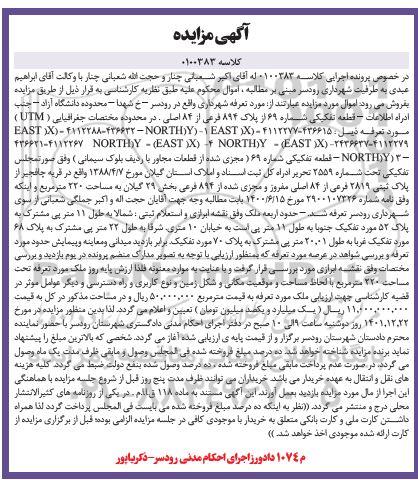 آگهی مزایده
کلاسه ۰۱۰۰۳۸۳
در خصوص پرونده اجرایی کلاسه ۰۱۰۰۳۸۳ له آقای اکبر شعبانی چنار و حجت الله شعبانی چنار با وکالت آقای ابراهیم
عبدی به طرفیت شهرداری رودسر مبنی بر مطالبه ، اموال محکوم علیه طبق نظریه کارشناسی به قرار ذیل از طریق مزایده
بفروش می رود: اموال مورد مزایده عبارتند از: مورد تعرفه شهرداری واقع در رودسر – خ شهدا – محدوده دانشگاه آزاد – جنب
اداره اطلاعات – قطعه تفکیکی شماره ۶۹ از پلاک ۸۹۴ فرعی از ۸۴ اصلی . در مختصات جغرافیایی ( UTM )
مورد تعرفه ذیل : ۴۳۶۶۱۵-۴۱۱۲۲۷۷= EAST )X( – NORTH)Y( -۱ ۴۳۶۶۳۲-۴۱۱۲۲۸۸= EAST )X(
– NORTH)Y( -۲۴۳۶۶۳۷-۴۱۱۲۲۷۹= (EAST )X( – NORTH)Y( -۴ ۴۳۶۶۲۱-۴۱۱۲۲۶۷= (EAST )X(
– NORTH)Y( ۳ قطعه تفکیکی شماره ۶۹ ( مجزی شده از قطعات مجاور با ردیف بلوک سیمانی ) وفق صورتمجلس
تفکیکی تحت شماره ۲۵۵۹ تحریر اداره کل ثبت اسناد و املاک استان گیلان مورخ ۱۳۸۸/۴/۷ واقع در قریه چافجیر از
پلاک ثبتی ۲۸۱۹ فرعی از ۸۴ اصلی مفروز و مجزی شده از ۸۹۴ فرعی بخش ۲۹ گیلان به مساحت ۲۲۰ مترمربع و اینکه
وفق نامه شماره ۲۹۰۰۱۰۷۳۲۶ مورخ ۱۴۰۰/۶/۱۵ بابت مطالبه وجه جهت آقایان حجت اله و اکبر جملگی شعبانی از سوی
شهرداری رودسر تعرفه شده – حدود اربعه ملک وفق نقشه ابرازی و استعلام ثبتی : شمالا به طول ۱۱ متر پی مشترک به
پلاک ۵۲ مورد تفکیک جنوبا به طول ۱۱ متر پی است به خیابان ۱۰ متری. شرقا به طول ۲۲ متر پی مشترک به پلاک ۶۸
مورد تفکیک غربا به طول ۲۰.۰۱ متر پی مشترک به پلاک ۷۰ مورد تفکیک. برابر بازدید میدانی ومعاینه وپیمایش حدود مورد
تعرفه و بررسی شواهد در عرصه مورد تعرفه که بمنظور ارزیابی با توجه به تصویر مدارک منضم پرونده در یوم بازدید و بررسی
مختصات وفق نقشه ابرازی مورد بررسی قرار گرفت و با عنایت به موارد معنونه فلذا ارزش پایه روز ملک مورد تعرفه تحت
مساحت ۲۲۰ مترمربع با لحاظ مساحت و موقعیت مکانی و شکل زمین و نوع کاربری و راه دسترسی و دیگر عوامل موثر در
قضیه کارشناسی جهت ارزیابی ملک مورد تعرفه به قیمت مترمربع ۵۰.۰۰۰.۰۰۰ ریال و در مساحت مذکور در کل به قیمت
۱۱.۰۰۰.۰۰۰.۰۰۰ ریال ( یک میلیارد و یکصد میلیون تومان ) تعیین و اعلام می گردد. لذا بدین منظور مزایده در مورخ
۱۴۰۱.۱۲.۲۲ روز دوشنبه ساعت ۹الی ۱۰ صبح در دفتر اجرای احکام مدنی دادگستری شهرستان رودسر با حضور نماینده
محترم دادستان شهرستان رودسر برگزار و از قیمت پایه ی ارزیابی شده آغاز می گردد. شخصی که بالاترین مبلغ را پیشنهاد
نماید برنده مزایده شناخته خواهد شد. ده درصد مبلغ فروخته شده فی المجلس وصول و مابقی ظرف مدت یک ماه وصول
می گردد. در صورت عدم پرداخت مابقی مبلغ فروخته شده ، ده درصد وصول شده بنفع دولت ضبط می گردد. کلیه هزینه
های نقل و انتقال به عهده خریدار می باشد. خریداران می توانند ظرف مدت پنج روز قبل از شروع جلسه مزایده با هماهنگی
این اجرا از مال مورد مزایده بازدید بعمل آورند. این آگهی مستند به ماده ۱۱۸ ق.ا.م . در یکی از روزنامه های کثیرالانتشار
محلی درج و منتشر می گردد. ((نظر به اینکه ده درصد مبلغ فروخته شده می بایست فی المجلس پرداخت گردد لذا همراه
داشتن کارت ملی و کارت بانکی متعلق به خریدار با موجودی کافی در جلسه مزایده الزامی بوده؛ قبل از برگزاری مزایده از
کارت ارائه شده موجودی اخذ خواهد شد. ))
م ۱۰۷۴ دادورز اجرای احکام مدنی رودسر-ذکریاپور